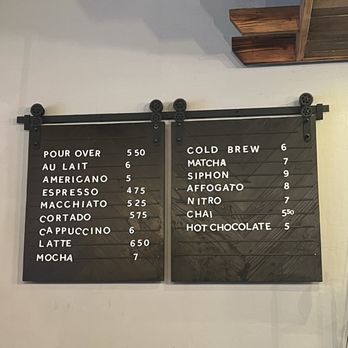 POUR OVER 5 50
AU LAIT 6
AMERICANO 5
ESPRESSO 4 75
MACCHIATO 5 25
CORTADO 5 75
CAPPUCCINO 6
LATTE 6 50
MOCHA 7
COLD BREW 6
MATCHA 7
SIPHON 9
AFFOGATO 8
NITRO 7
CHAI 5 50
HOT CHOCOLATE 5